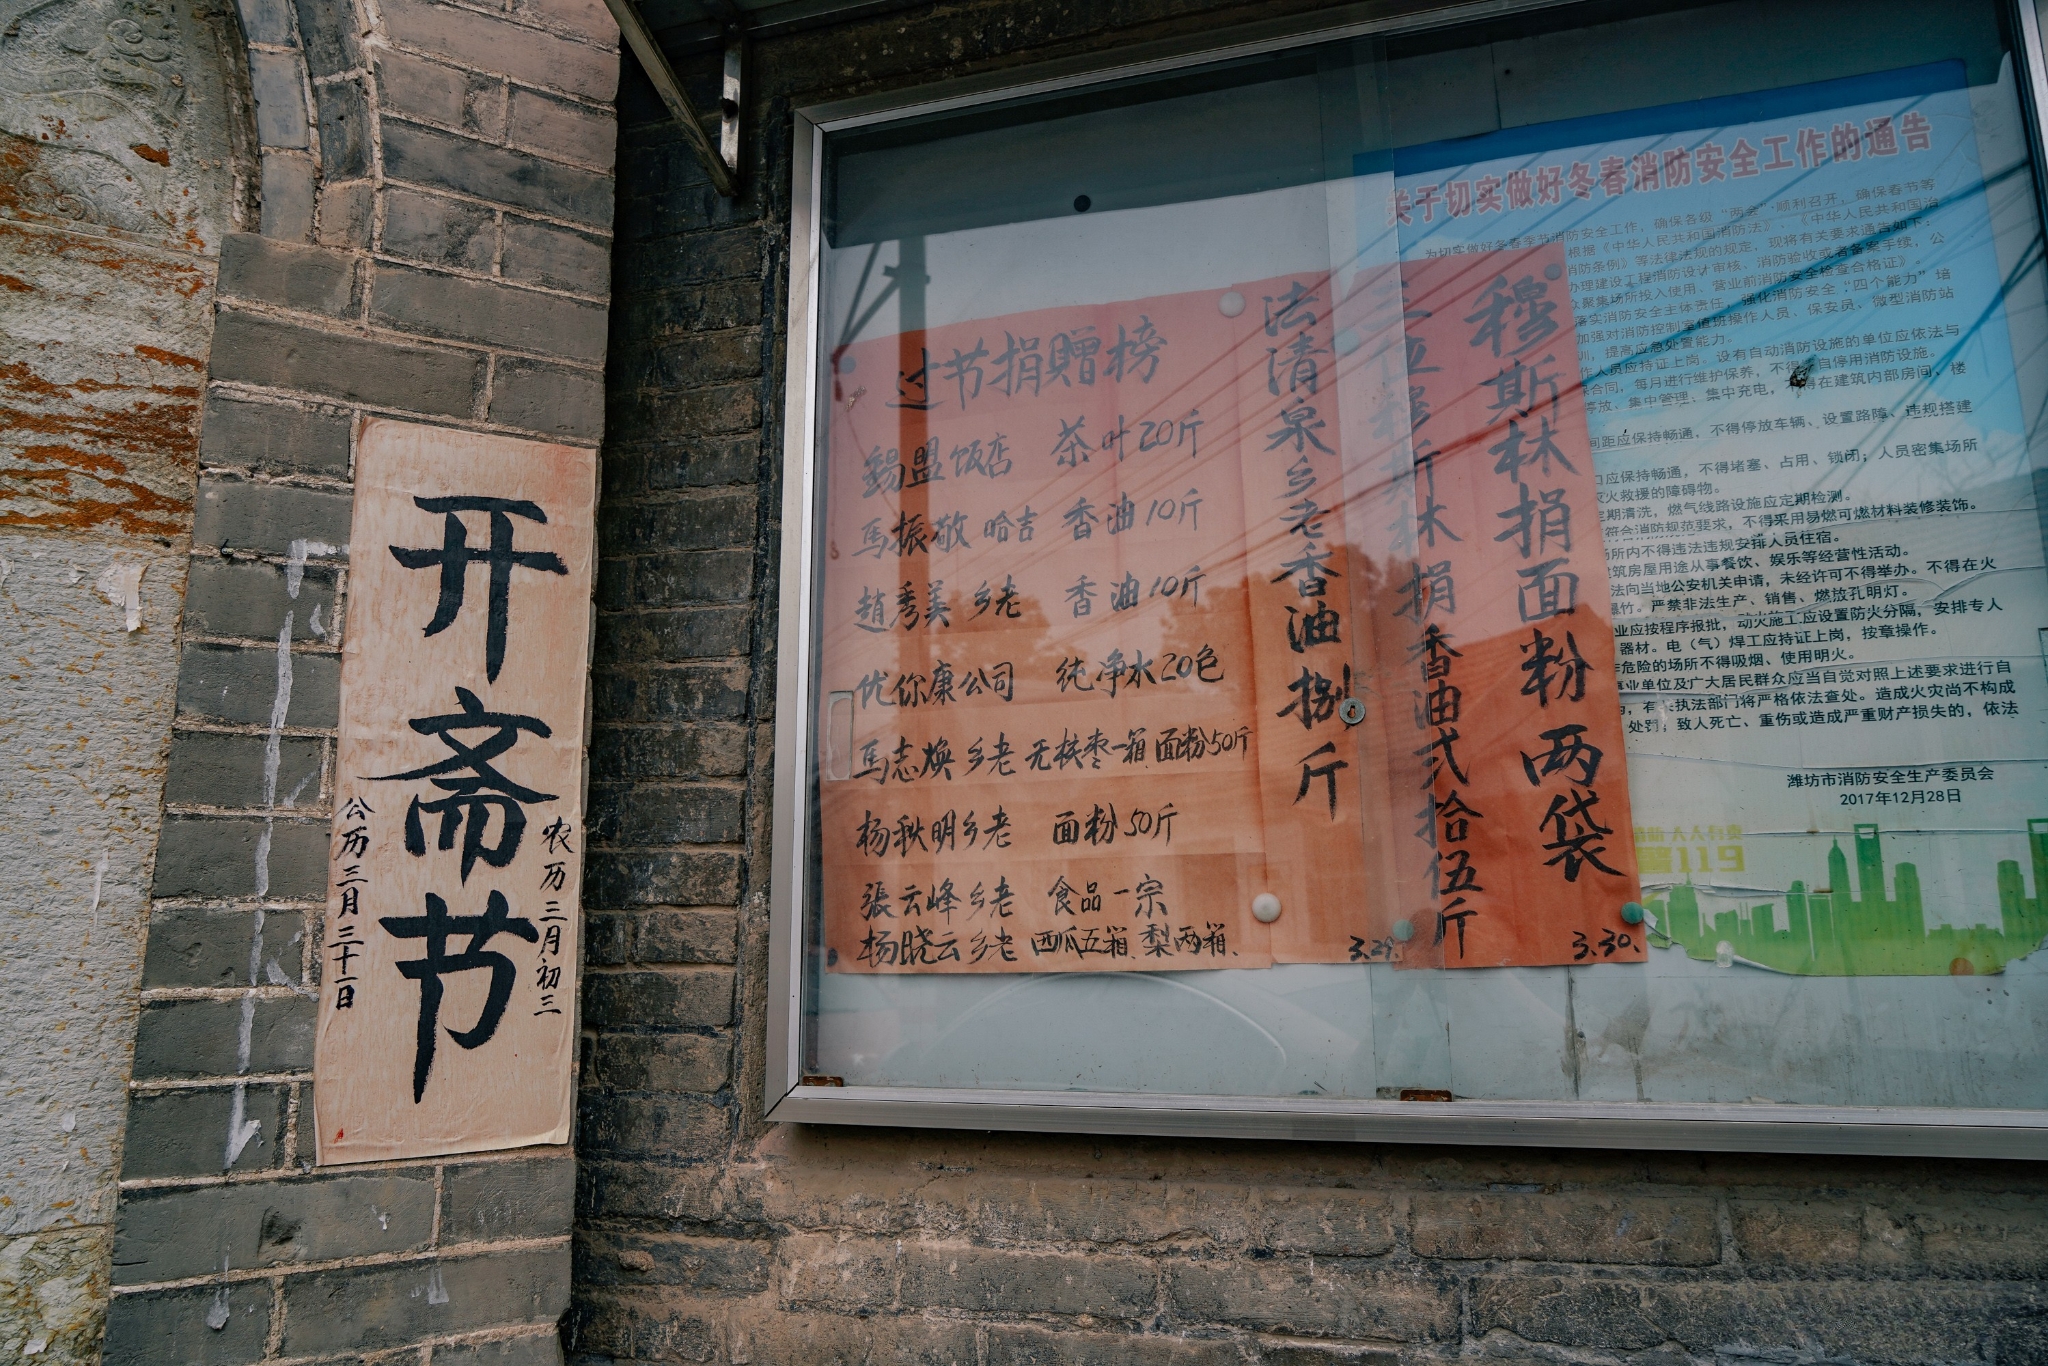 开斋节
农历三月初三
公历三月三十一日
过节捐赠榜
錫盟饭店 茶叶20斤
馬振敬 哈吉 香油10斤
趙秀美 乡老 香油10斤
优你康公司 纯净水20包
馬志焕 乡老 无核枣一箱 面粉50斤
杨秋明乡老 面粉50斤
張云峰乡老 食品一宗
杨晓云乡老 西瓜五箱 梨两箱.
法清泉乡老香油捌斤
三位穆斯林捐香油弍拾伍斤
3.29.
穆斯林捐面粉两袋
3.30.
关于切实做好冬春消防安全工作的通告
为切实做好冬春季节消防安全工作，确保各级“两会”顺利召开，确保春节等
根据《中华人民共和国消防法》、《中华人民共和国治
消防条例》等法律法规的规定，现将有关要求通告如下：
办理建设工程消防设计审核、消防验收或者备案手续，公
众聚集场所投入使用、营业前消防安全检查合格证》。
落实消防安全主体责任，强化消防安全“四个能力”培
加强对消防控制室值班操作人员、保安员、微型消防站
训，提高应急处置能力。
作人员应持证上岗。设有自动消防设施的单位应依法与
合同，每月进行维护保养，不得擅自停用消防设施。
停放、集中管理、集中充电，得在建筑内部房间、楼
间距应保持畅通，不得停放车辆、设置路障、违规搭建
口应保持畅通，不得堵塞、占用、锁闭；人员密集场所
灾火救援的障碍物。
定期清洗，燃气线路设施应定期检测。
符合消防规范要求，不得采用易燃可燃材料装修装饰。
场所内不得违法违规安排人员住宿。
建筑房屋用途从事餐饮、娱乐等经营性活动。
法向当地公安机关申请，未经许可不得举办。不得在火
爆竹。严禁非法生产、销售、燃放孔明灯。
业应按程序报批，动火施工应设置防火分隔，安排专人
器材。电（气）焊工应持证上岗，按章操作。
危险的场所不得吸烟、使用明火。
事业单位及广大居民群众应当自觉对照上述要求进行自
，有关执法部门将严格依法查处。造成火灾尚不构成
处罚；致人死亡、重伤或造成严重财产损失的，依法
潍坊市消防安全生产委员会
2017年12月28日
人人有责
警119